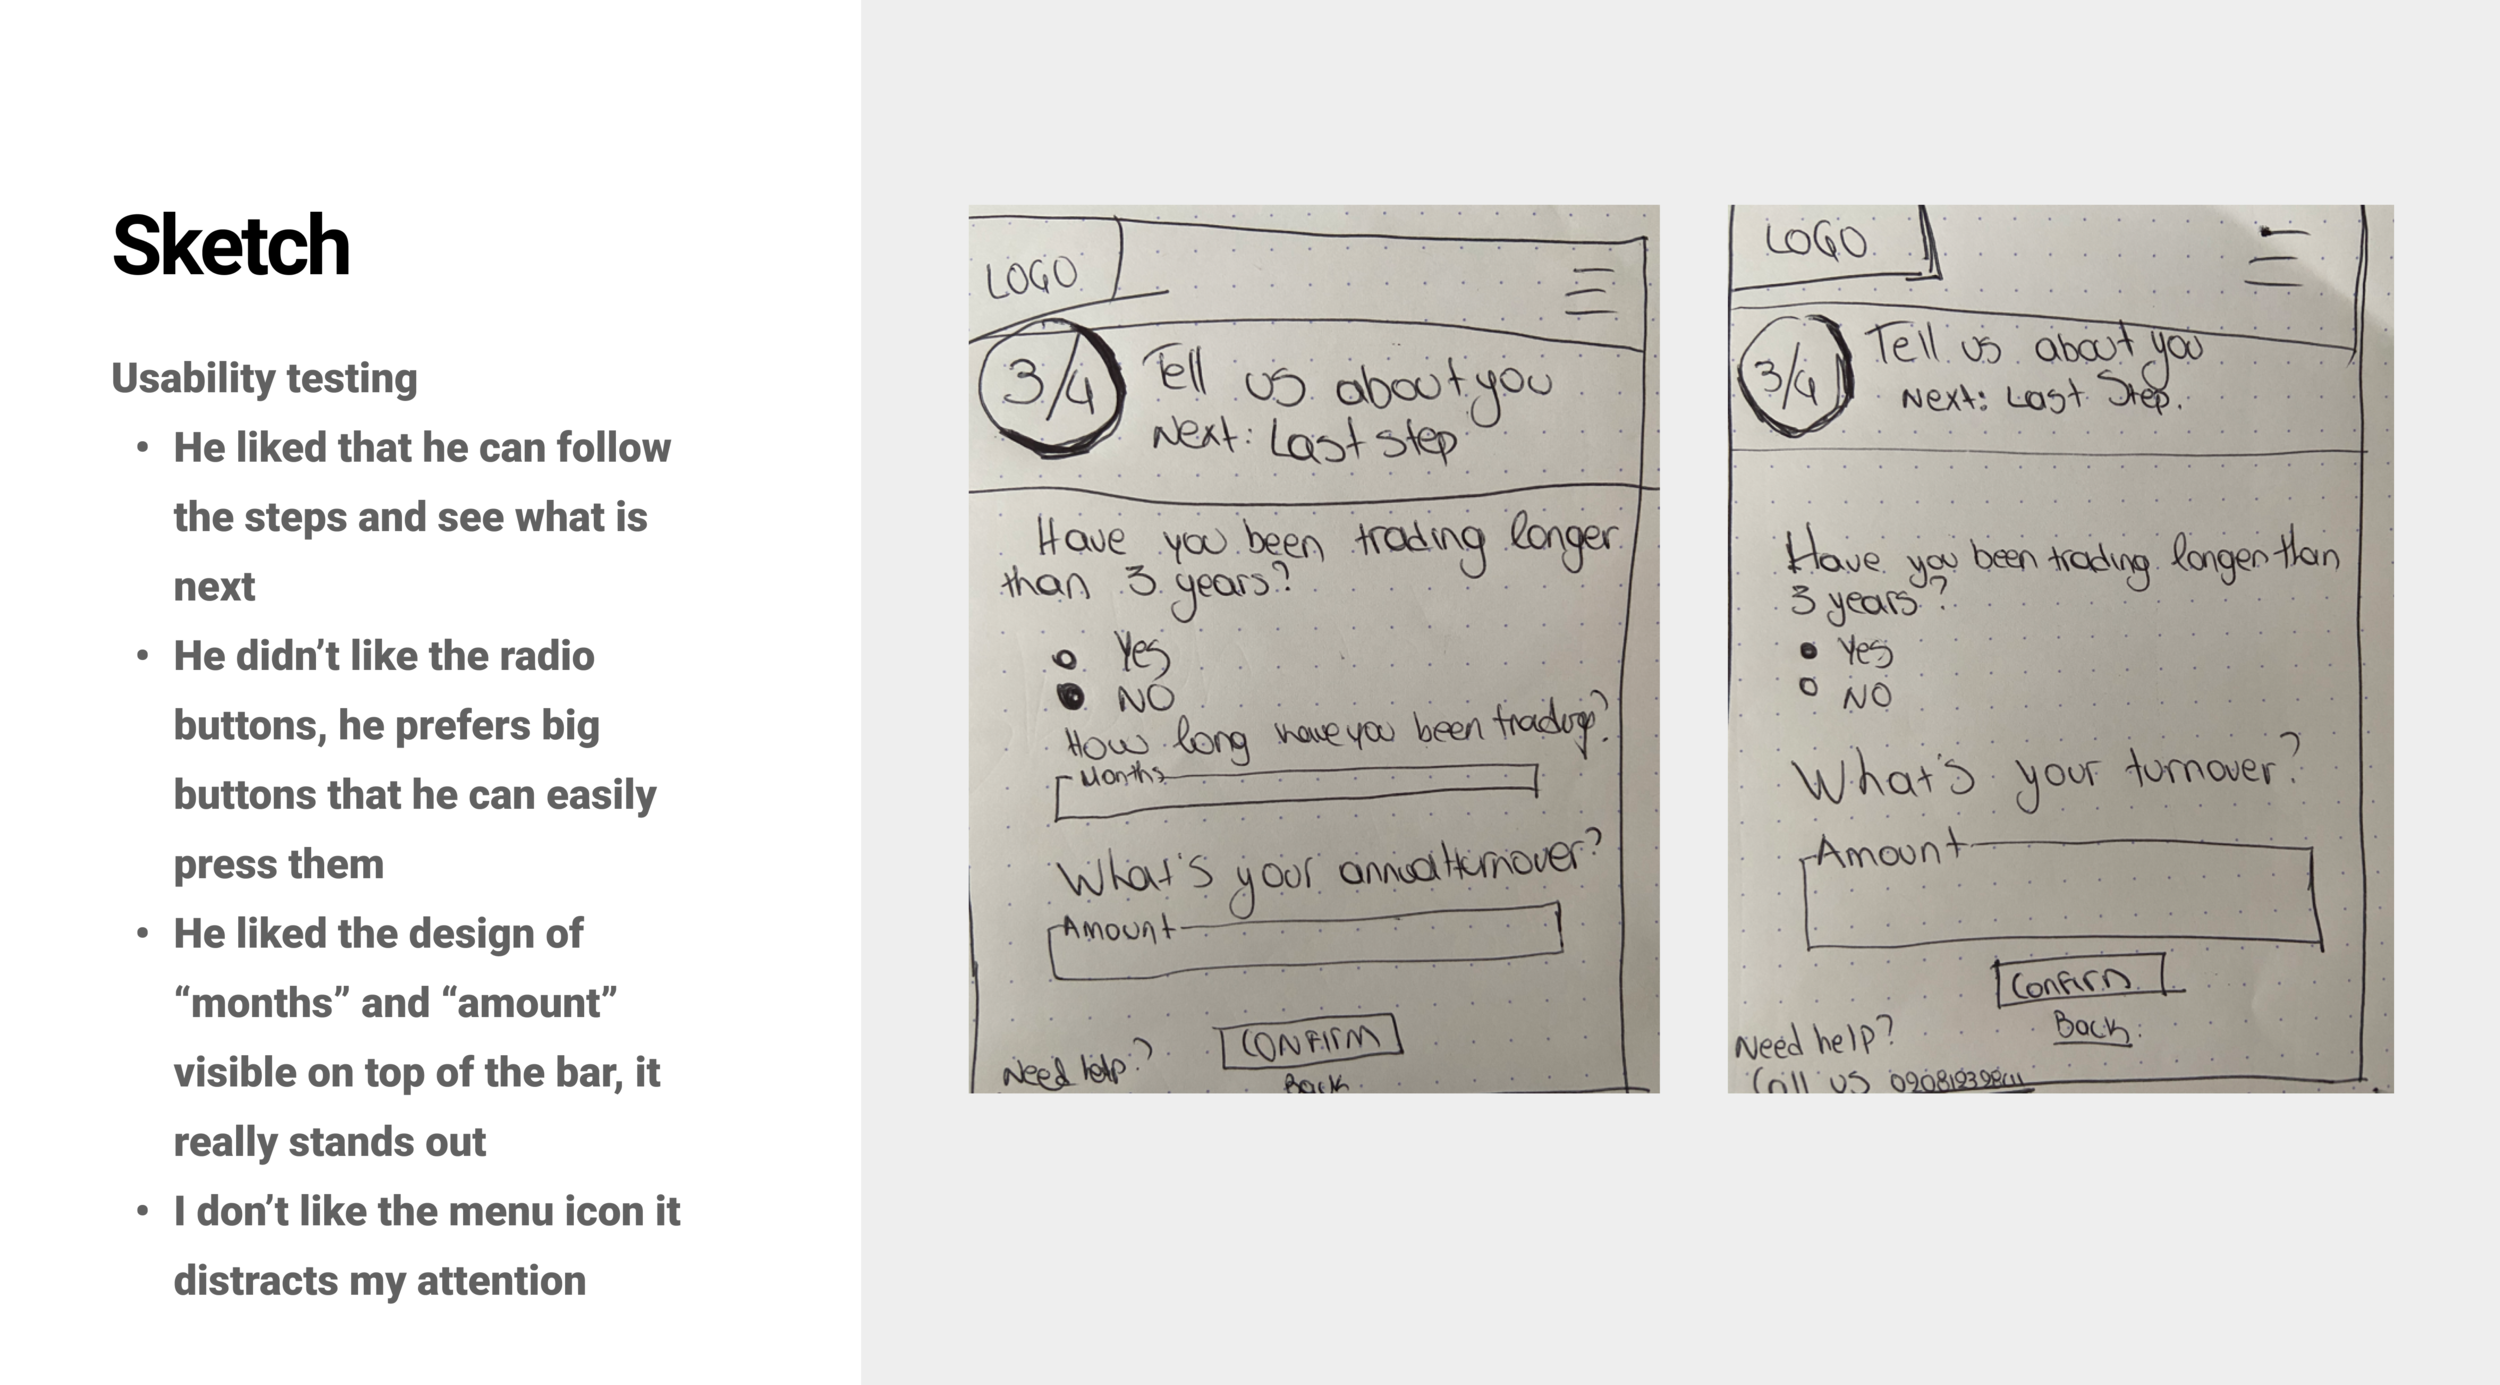 Sketch
Usability testing
• He liked that he can follow
the steps and see what is
next
• He didn’t like the radio
buttons, he prefers big
buttons that he can easily
press them
• He liked the design of
“months” and “amount”
visible on top of the bar, it
really stands out
• I don’t like the menu icon it
distracts my attention
LOGO
3/4
Tell us about you
Next: Last step
Have you been trading longer
than 3 years?
Yes
NO
How long have you been trading?
Months
What's your annual turnover?
Amount
CONFIRM
Need help?
Back
LOGO
3/4
Tell us about you
Next: Last Step.
Have you been trading longer than
3 years?
Yes
NO
What's your turnover?
Amount
Confirm
Back
Need help?
Call us